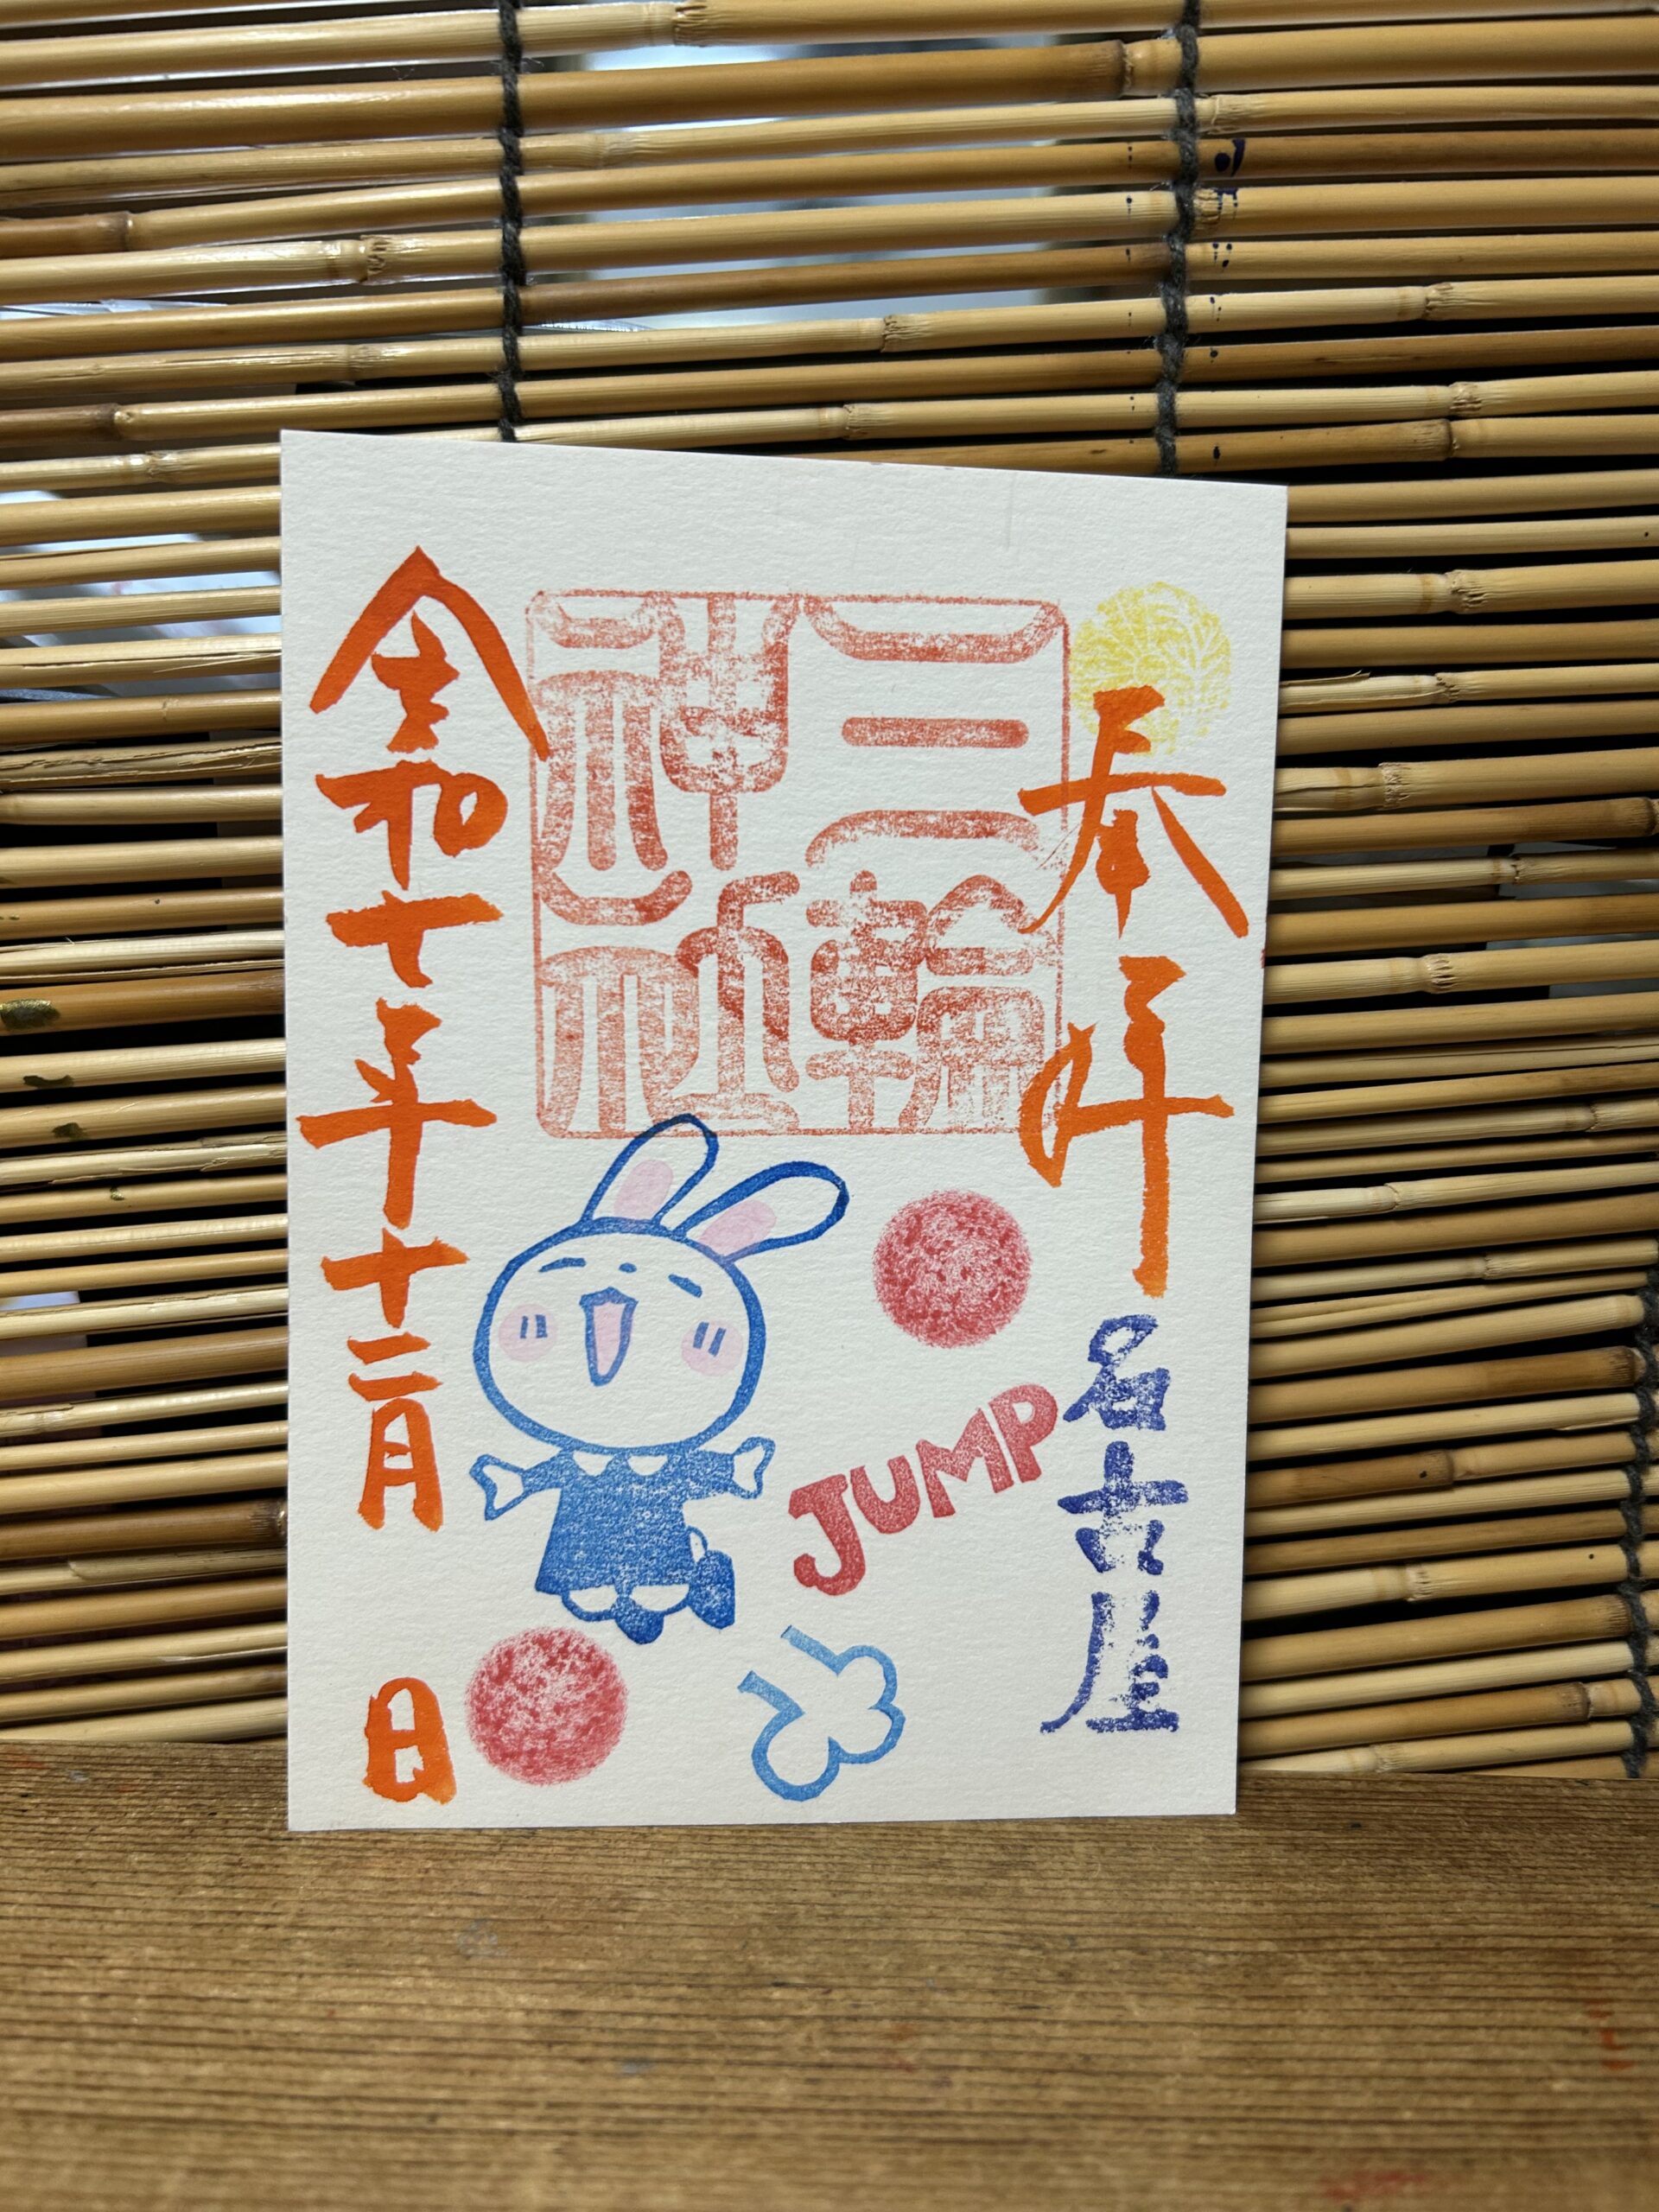 奉拝
名古屋
三輪
神社
JUMP
令和七年十二月 日